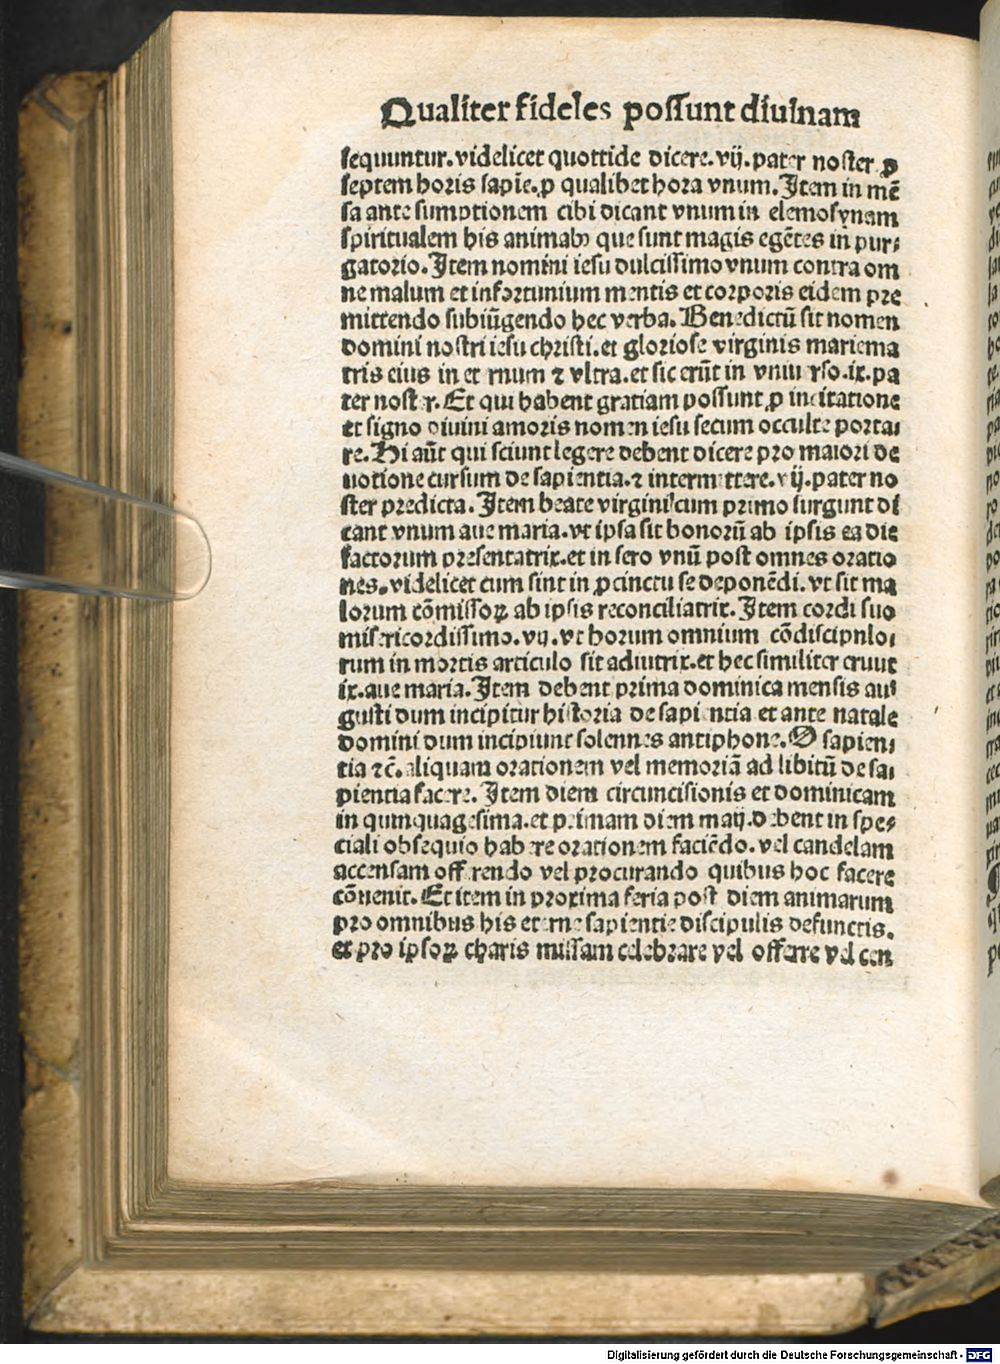 Qualiter fideles possunt diuinam
sequuntur. videlicet quottide dicere. vij. pater noster ꝓ
septem horis sapiē. ꝑ qualibet hora vnum. Item in mē
sa ante sumptionem cibi dicant vnum in elemosynam
spiritualem his animabꝰ que sunt magis egētes in pur⸗
gatorio. Item nomini iesu dulcissimo vnum contra om
ne malum et infortunium mentis et corporis eidem pre
mittendo subiūgendo hec verba. Benedictū sit nomen
domini nostri iesu christi. et gloriose virginis marie ma
tris eius in eternum ⁊ vltra. et sic erūt in vniuerso. ix. pa
ter noster. Et qui habent gratiam possunt ꝓ incitatione
et signo diuini amoris nomen iesu secum occulte porta⸗
re. Hi aūt qui sciunt legere debent dicere pro maiori de
uotione cursum de sapientia. ⁊ intermittere. vij. pater no
ster predicta. Item beate virgini cum primo surgunt di
cant vnum aue maria. vt ipsa sit bonorū ab ipsis ea die
factorum presentatrix. et in sero vnū post omnes oratio
nes. videlicet cum sint in ꝓcinctu se deponēdi. vt sit ma
lorum cōmissoꝝ ab ipsis reconciliatrix. Item cordi suo
misericordissimo. vij. vt horum omnium cōdiscipulo⸗
rum in mortis articulo sit adiutrix. et hec similiter erunt
ix. aue maria. Item debent prima dominica mensis au⸗
gusti dum incipitur historia de sapientia et ante natale
domini dum incipiunt solennes antiphone. O sapien⸗
tia ⁊c̄. aliquam orationem vel memoriā ad libitū de sa⸗
pientia facere. Item diem circuncisionis et dominicam
in quinquagesima. et primam diem maij. debent in spe⸗
ciali obsequio habere orationem faciēdo. vel candelam
accensam offerendo vel procurando quibus hoc facere
cōuenit. Et item in proxima feria post diem animarum
pro omnibus his eterne sapientie discipulis defunctis.
et pro ipsoꝝ charis missam celebrare vel offerre vel cen
Digitalisierung gefördert durch die Deutsche Forschungsgemeinschaft - DFG